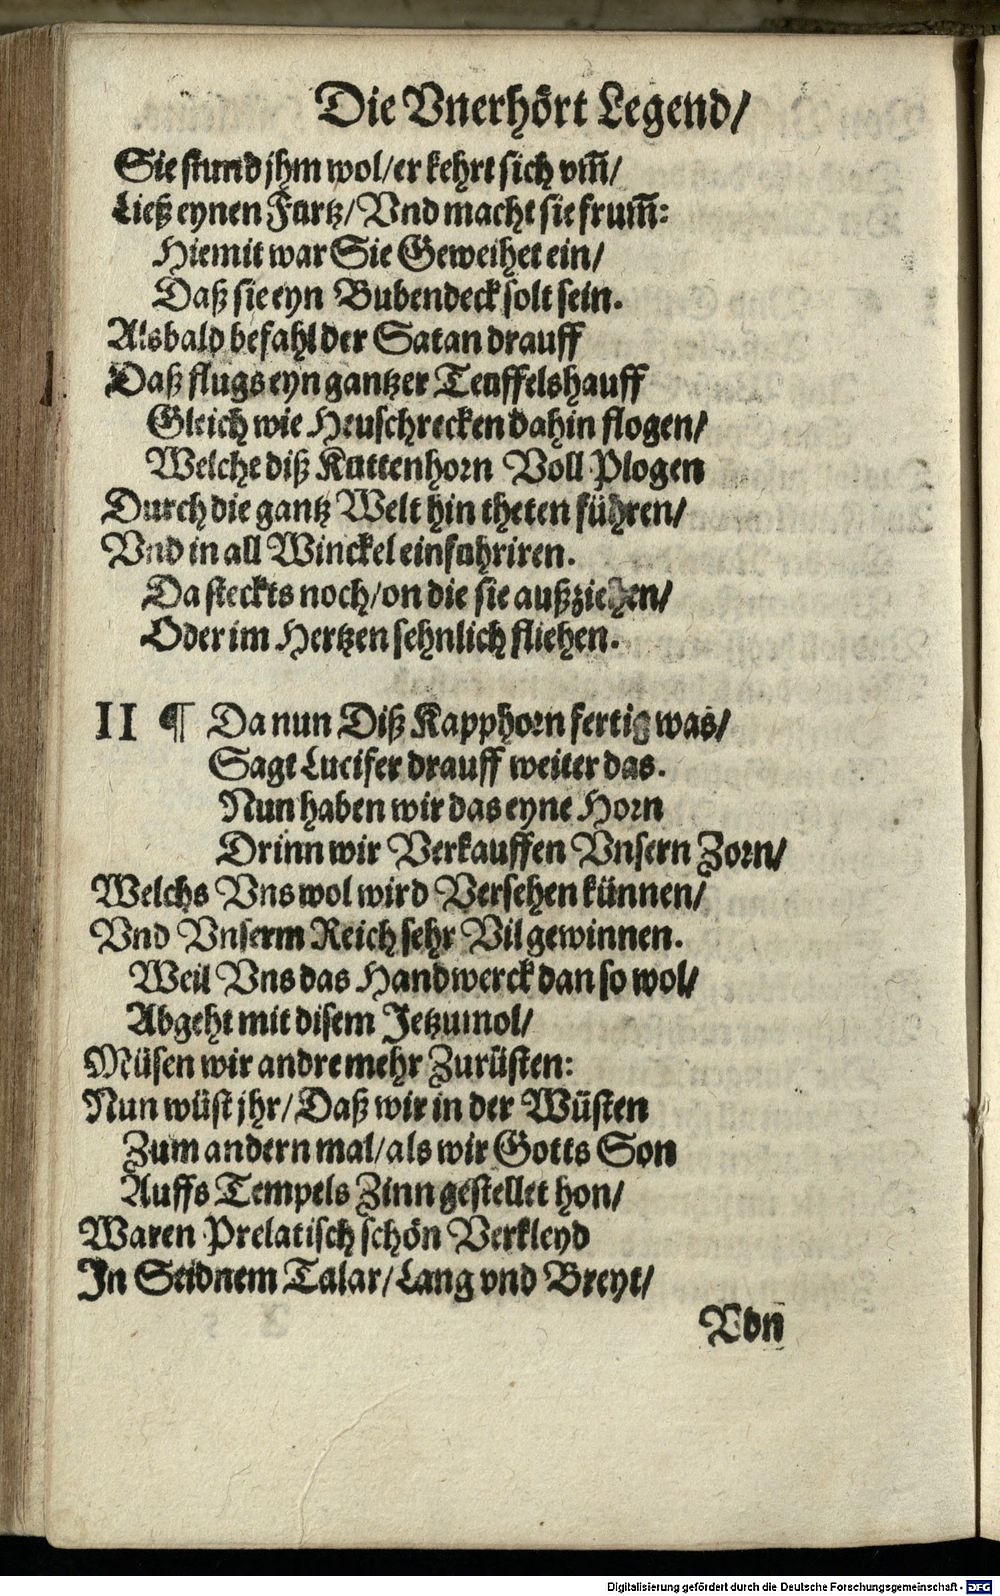 Die Vnerhört Legend/
Sie stund jhm wol/er kehrt sich vm̃/
Ließ eynen Furtz/ Vnd macht sie frum̃:
Hiemit war Sie Geweihet ein/
Daß sie eyn Bubendeck solt sein.
Alsbald befahl der Satan drauff
Daß flugs eyn gantzer Teuffelshauff
Gleich wie Heuschrecken dahin flogen/
Welche diß Kuttenhorn Voll Plogen
Durch die gantz Welt hin theten führen/
Vnd in all Winckel einfuhriren.
Da steckts noch/on die sie außziehen/
Oder im Hertzen sehnlich fliehen.
II ¶ Da nun Diß Kapphorn fertig was/
Sagt Lucifer drauff weiter das.
Nun haben wir das eyne Horn
Drinn wir Verkauffen Vnsern Zorn/
Welchs Vns wol wird Versehen künnen/
Vnd Vnserm Reich sehr Vil gewinnen.
Weil Vns das Handwerck dan so wol/
Abgeht mit disem Jetzumol/
Müsen wir andre mehr Zurüsten:
Nun wüst jhr/Daß wir in der Wüsten
Zum andern mal/als wir Gotts Son
Auffs Tempels Zinn gestellet hon/
Waren Prelatisch schön Verkleyd
In Seidnem Talar/Lang vnd Breyt/
Vdn
Digitalisierung gefördert durch die Deutsche Forschungsgemeinschaft - DFG